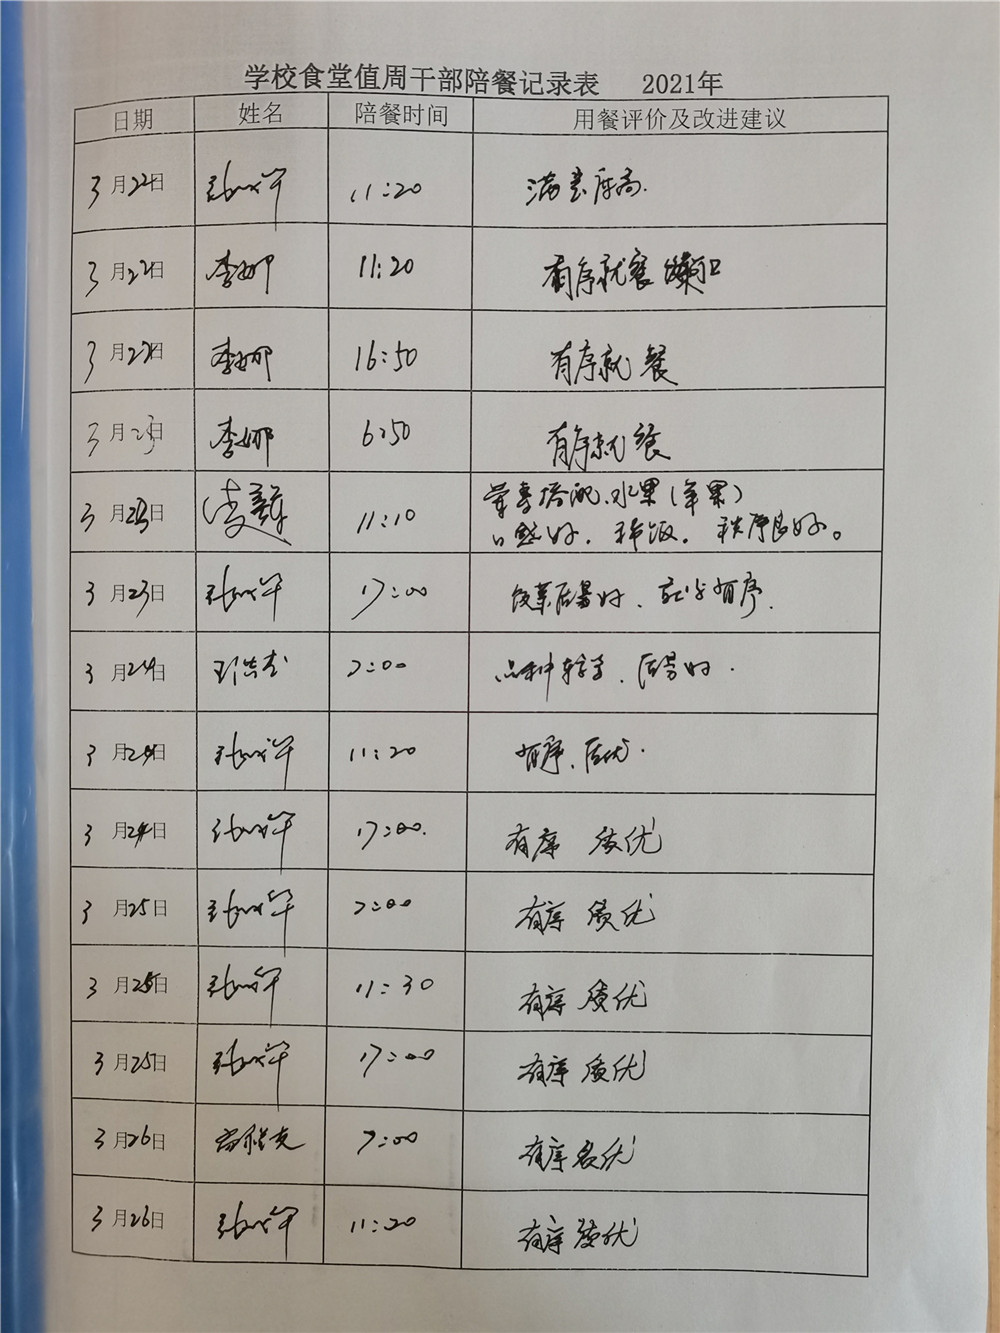 学校食堂值周干部陪餐记录表 2021年
日期 姓名 陪餐时间 用餐评价及改进建议
3月22日 11:20 满意度高.
3月22日 李娜 11:20 有序就餐
3月22日 李娜 16:50 有序就餐
3月23日 李娜 6:50 有序就餐
3月23日 11:10 营养搭配、水果(苹果)
口感好, 稀饭, 秩序良好。
3月23日 17:00 饭菜质量好、就餐有序.
3月24日 7:00 品种较多、质量好.
3月24日 11:20 有序、质优.
3月24日 17:00. 有序 质优
3月25日 7:00 有序 质优
3月25日 11:30 有序 质优
3月25日 17:00 有序 质优
3月26日 7:00 有序 质优
3月26日 11:20 有序 质优